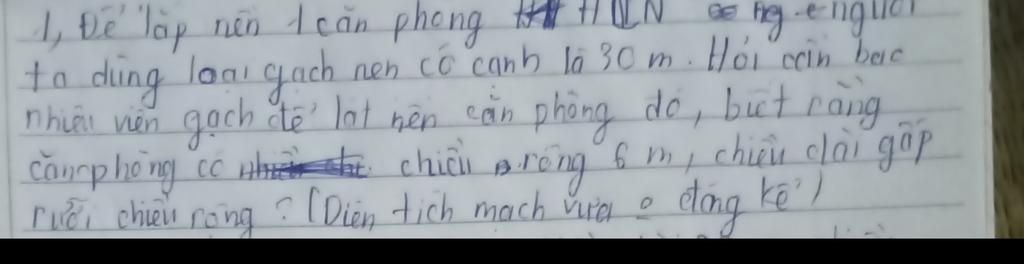 1, Để láp nền 1 căn phong HCN ng người
ta dùng loại gạch nen có cạnh là 30 m. Hỏi cần bac
nhiêu viên gạch để lát nền căn phòng đó, biết rằng
căn phòng có chiều rộng 6 m, chiều dài gấp
rưỡi chiều rộng? (Diện tích mạch vừa o đáng kể)